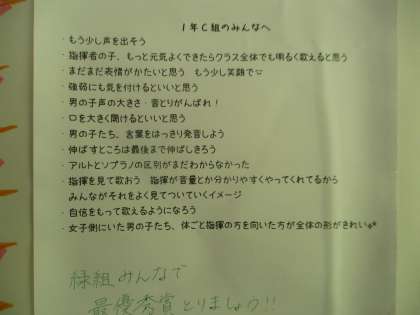 1年C組のみんなへ
・もう少し声を出そう
・指揮者の子、もっと元気よくできたらクラス全体でも明るく歌えると思う
・まだまだ表情がかたいと思う もう少し笑顔で♡
・強弱にも気を付けるといいと思う
・男の子声の大きさ・音とりがんばれ!
・口を大きく開けるといいと思う
・男の子たち、言葉をはっきり発音しよう
・伸ばすところは最後まで伸ばしきろう
・アルトとソプラノの区別がまだわからなかった
・指揮を見て歌おう 指揮が音量とか分かりやすくやってくれてるから
みんながそれをよく見てついていくイメージ
・自信をもって歌えるようになろう
・女子側にいた男の子たち、体ごと指揮の方を向いた方が全体の形がきれい
緑組みんなで
最優秀賞とりましょう!!